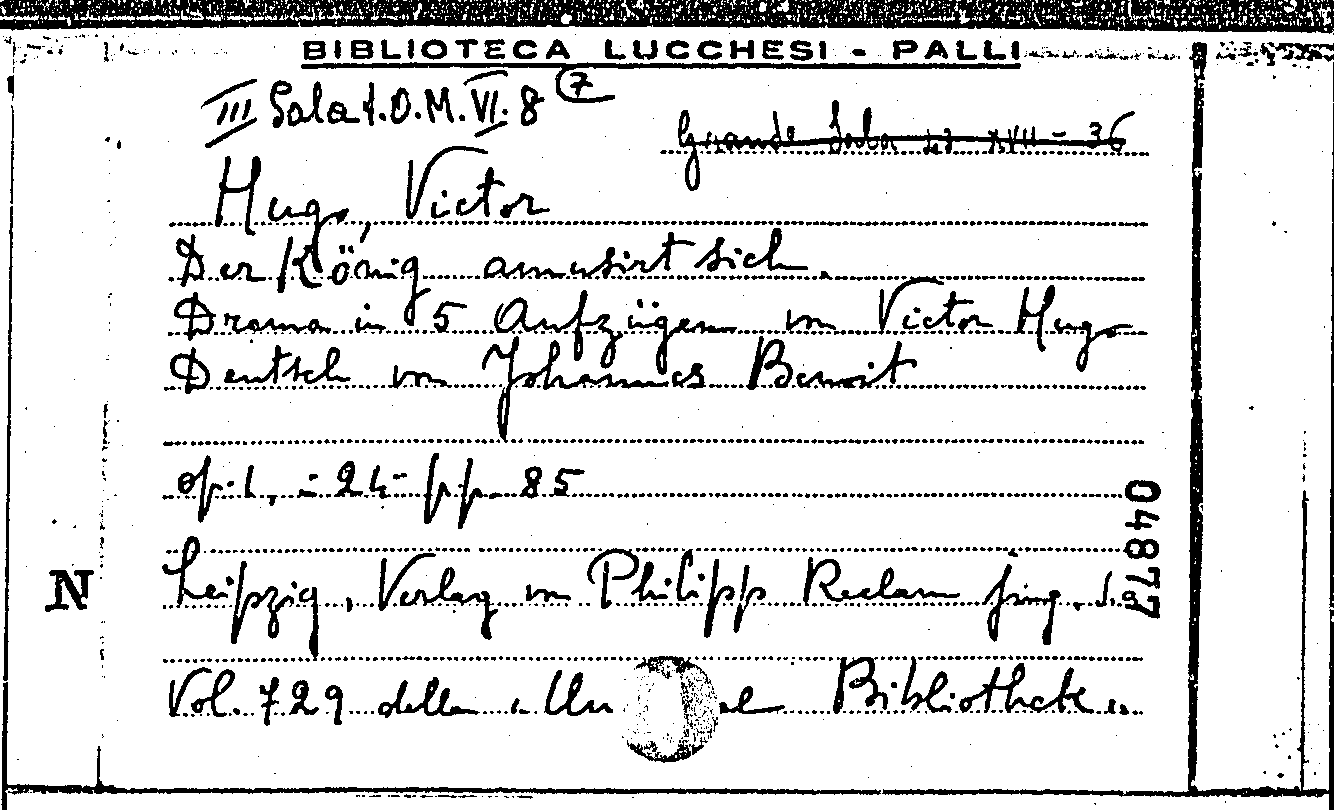 BIBLIOTECA LUCCHESI - PALLI
III Sala 1.O.M.VI.8 (7)
Grande Sala 23 XVII - 36
Hugo, Victor
Der König amusirt sich.
Drama in 5 Aufzügen von Victor Hugo
Deutsch von Johannes Benoit
op. 1, in 24° pp. 85
04877
N
Leipzig, Verlag von Philipp Reclam jung. s.a.
Vol. 729 della "Un al Bibliothek"